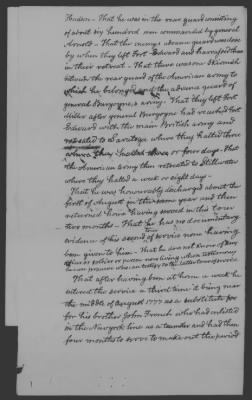 Hudson – That he was in the rear guard consisting
of about six hundred men commanded by general
Arnold – That the enemies advance guard was close
by when they left Fort Edward and harrassed them
in their retreat – That there was one Skirmish
between the rear guard of the American army to
which he belonged and the advance guard of
general Burgoyne's army. That they left Fort
Miller after general Burgoyne had reached Fort
Edward with the main British army and
retreated to Saratoga where they halted three
or four days. That
the American army then retreated to Stillwater
where they halted a week or eight days –
That he was honourably discharged about the
first of August in the same year and then
returned home having served in this tour
two months – That he has no documentary
evidence of his second of service none having
been given to him – That he does not know of any
officer or soldier or person now living whose testimony
he can procure who can testify to the latter term of service
That after having been at home a week he
entered the service a third time it being near
the middle of August 1777 as a substitute for
for his brother John French who had enlisted
in the Newyork line as a teamster and had then
four months to serve to make out the period